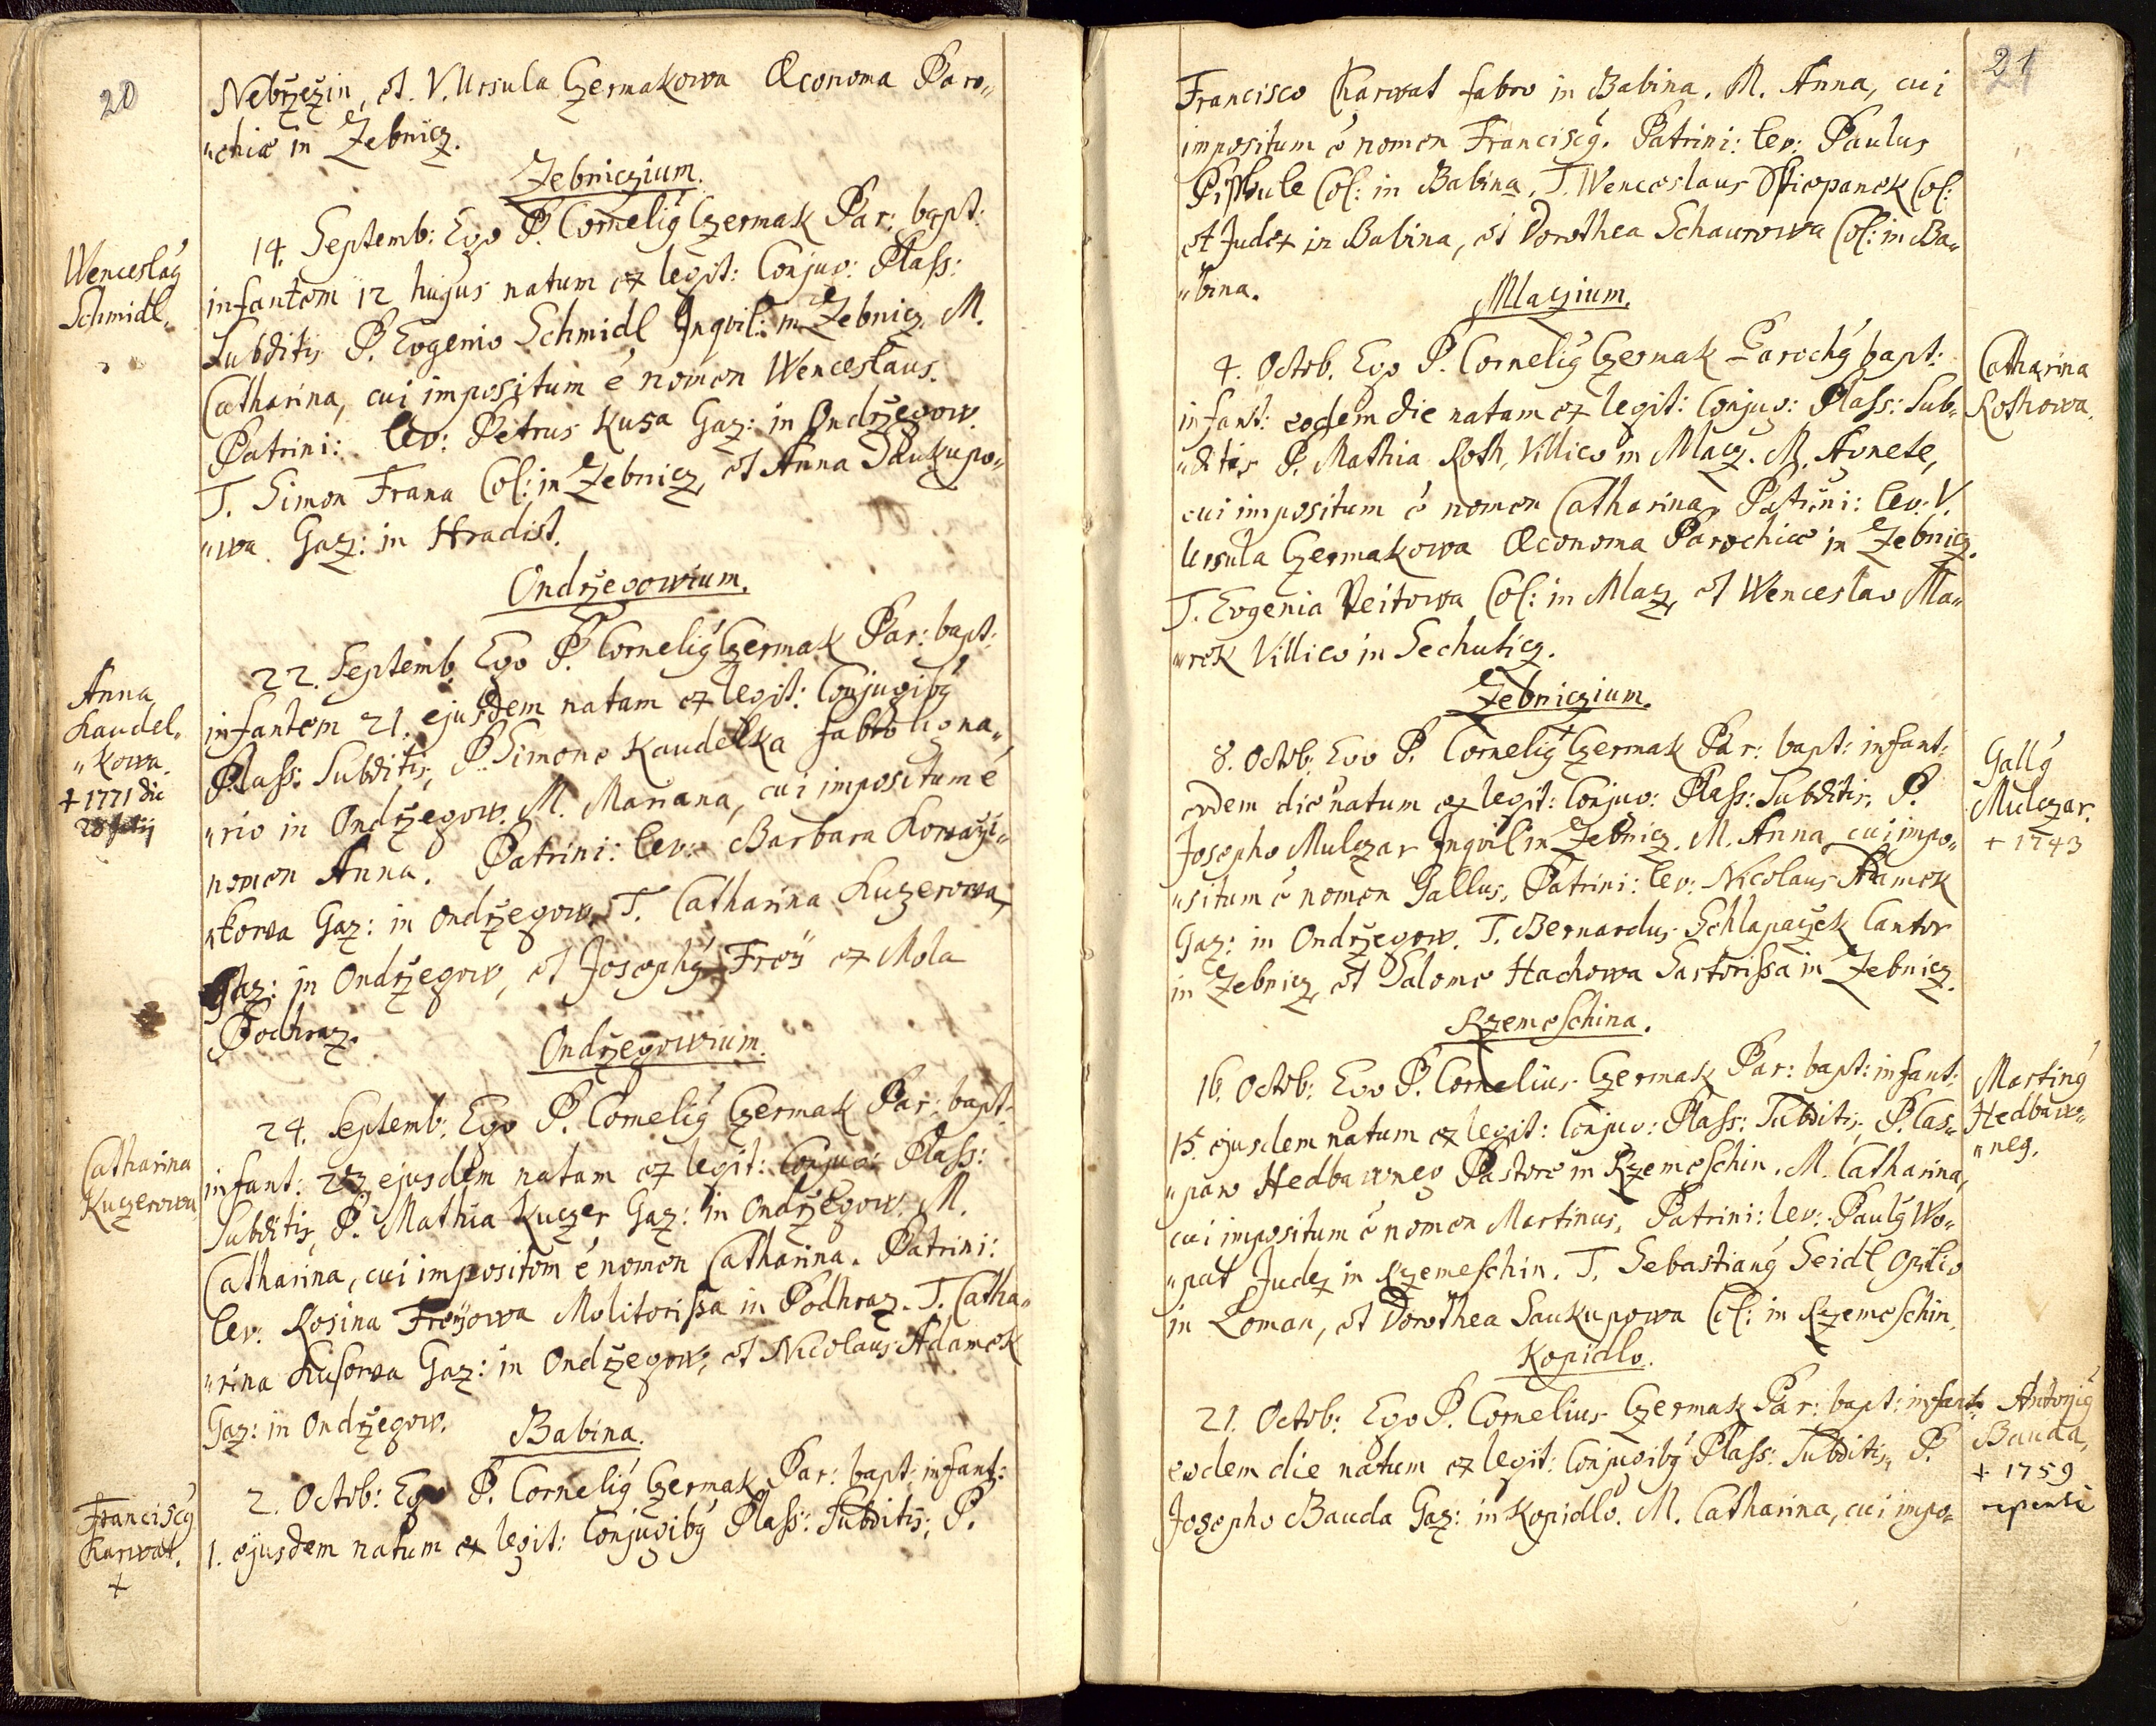 20
Nebržežin, et. V. Ursula Czermakowa Œconoma Paro„
„chiæ in Žebnicz.
Žebniczium.
Wenceslaus
Schmidl.
14. Septemb: Ego P. Cornelius Czermak Par: bapt:
infantem 12 hujus natum ex legit: Conjug: Plass:
Subditis P. Eugenio Schmidl Inqvil: in Žebnicz, M.
Catharina, cui impositum ē nomen Wenceslaus.
Patrini: lev: Petrus Kusa Gaz: in Ondržegow.
T. Simon Frana Col: in Žebnicz, et Anna Saukupo„
„wa Gaz: in Hradist.
Ondržegowium.
Anna
Kaudel„
„kowa.
+ 1771 die
28 Julij
22. Septemb. Ego P. Cornelius Czermak Par: bapt:
infantem 21. ejusdem natam ex legit: Conjugibus
Plass: Subditis, P. Simone Kaudelka fabro ligna„
„rio in Ondržegow. M. Mariana, cui impositum ē
nomen Anna. Patrini: lev: Barbara Kowarži„
„kowa Gaz: in Ondržegow, T. Catharina Kuzerowa,
Gaz: in Ondržegow, et Josephus Freÿ ex Mola
Podhraz.
Ondržegowium.
Catharina
Kuczerowa
24. Septemb: Ego P. Cornelius Czermak Par: bapt:
infant: 23 ejusdem natam ex legit: Conjug: Plass:
Subditis, P. Mathia Kuczer Gaz: in Ondržegow. M.
Catharina, cui impositom ē nomen Catharina. Patrini:
lev: Rosina Freÿowa Molitorissa in Podhraz. T. Catha„
„rina Kusowa Gaz: in Ondržegow, et Nicolaus Adamek
Gaz: in Ondržegow.
Babina.
Franciscus
Charwat.
+
2. Octob: Ego P. Cornelius Czermak Par: bapt: infant:
1. ejusdem natum ex legit: Conjugibus Plass: Subditis, P.
21
Francisco Charwat fabro in Babina. M. Anna, cui
impositum ē nomen Franciscus. Patrini: lev: Paulus
Pisskule Col: in Babina, T. Wenceslaus Sstiepanek Col:
et Judex in Babina, et Dorothea Schaurowa Col: in Ba„
„bina.
Mlaczium.
Catharina
Rothowa.
4. Octob. Ego P. Cornelius Czermak Parochus bapt:
infant: eodem die natam ex legit: Conjug: Plass: Sub„
„ditis P. Mathia Roth, Villico in Mlacz. M. Agnete,
cui impositum ē nomen Catharina, Patrini: lev: V.
Ursula Czermakowa Œconoma Parochiæ in Žebnicz.
T. Eugenia Veitowa Col: in Mlaz, et Wenceslao Ma„
„rek Villico in Sechuticz.
Žebniczium.
Gallus
Mulczar.
+ 1743
8. Octob: Ego P. Cornelius Czermak Par: bapt: infant:
eodem die natum ex legit: Conjug: Plass: Subditis, P.
Josepho Mulczar Inqvil in Žebnicz. M. Anna, cui impo„
„situm ē nomen Gallus, Patrini: lev: Nicolaus Adamek
Gaz: in Ondržegow. T. Bernardus Schlapažek Cantor
in Žebnicz, et Salome Hachowa Sartorissa in Žebnicz.
Rzemeschina.
Martinus
Hedbaw„
„neg.
16. Octob: Ego P. Cornelius Czermak Par: bapt: infant:
15. ejusdem natum ex legit: Conjug: Plass: Subditis, P. Cas„
„paro Hedbawneg Pastore in Rzemeschin. M. Catharina,
cui impositum ē nomen Martinus, Patrini: lev: Paulus Wo„
„pat Judex in Rzemeschin. T. Sebastianus Seidl Opilio
in Loman, et Dorothea Saukupowa Col: in Rzemeschin.
Kopidlo.
Antonius
Bauda,
+ 1759
repente
21. Octob: Ego P. Cornelius Czermak Par: bapt: infant:
eodem die natum ex legit: Conjugibus Plass: Subditis, P.
Josepho Bauda Gaz: in Kopidlo. M. Catharina, cui impo„